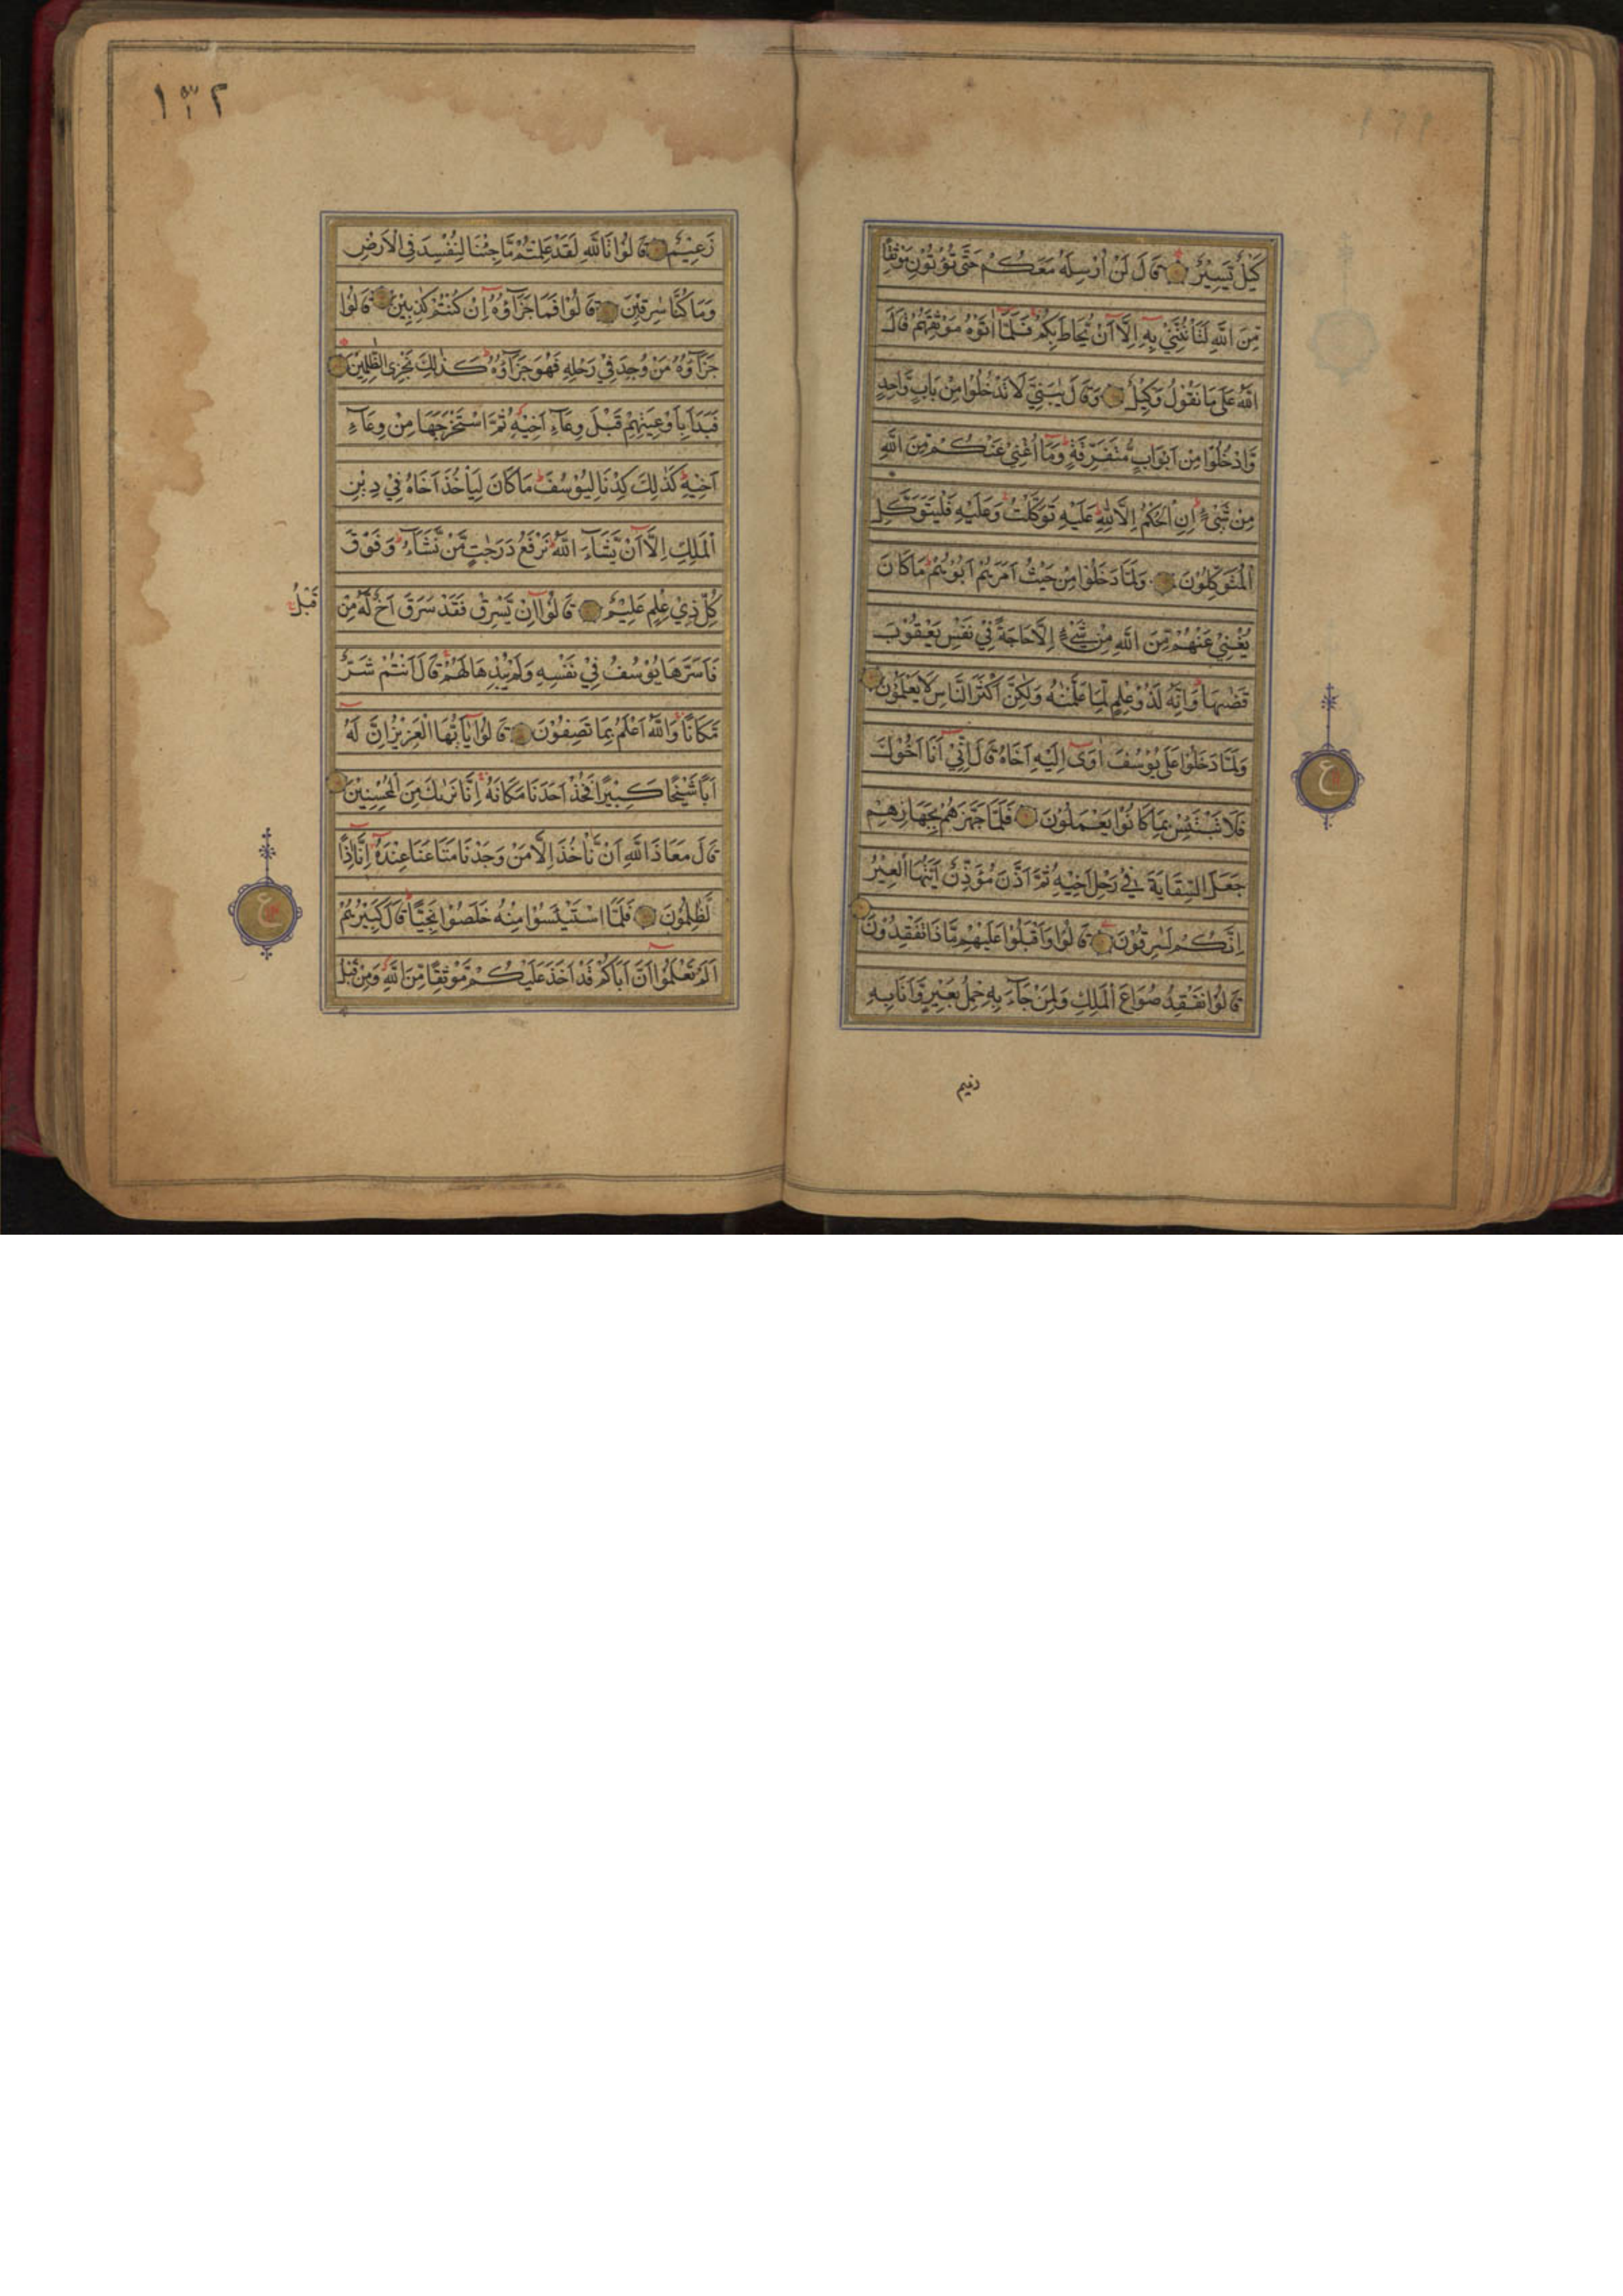 كَيْلٌ يَسِيْرٌ قَالَ لَنْ اُرْسِلَهُ مَعَكُمْ حَتّٰى تُؤْتُوْنِ مَوْثِقًا
مِّنَ اللّٰهِ لَتَأْتُنَّنِيْ بِهٖ اِلَّآ اَنْ يُّحَاطَ بِكُمْ فَلَمَّآ اٰتَوْهُ مَوْثِقَهُمْ قَالَ
اللّٰهُ عَلٰى مَا نَقُوْلُ وَكِيْلٌ وَقَالَ يٰبَنِيَّ لَا تَدْخُلُوْا مِنْ بَابٍ وَّاحِدٍ
وَّادْخُلُوْا مِنْ اَبْوَابٍ مُّتَفَرِّقَةٍ وَمَآ اُغْنِيْ عَنْكُمْ مِّنَ اللّٰهِ
مِنْ شَيْءٍ اِنِ الْحُكْمُ اِلَّا لِلّٰهِ عَلَيْهِ تَوَكَّلْتُ وَعَلَيْهِ فَلْيَتَوَكَّلِ
الْمُتَوَكِّلُوْنَ وَلَمَّا دَخَلُوْا مِنْ حَيْثُ اَمَرَهُمْ اَبُوْهُمْ مَا كَانَ
يُغْنِيْ عَنْهُمْ مِّنَ اللّٰهِ مِنْ شَيْءٍ اِلَّا حَاجَةً فِيْ نَفْسِ يَعْقُوْبَ
قَضٰىهَا وَاِنَّهٗ لَذُوْ عِلْمٍ لِّمَا عَلَّمْنٰهُ وَلٰكِنَّ اَكْثَرَ النَّاسِ لَا يَعْلَمُوْنَ
وَلَمَّا دَخَلُوْا عَلٰى يُوْسُفَ اٰوٰٓى اِلَيْهِ اَخَاهُ قَالَ اِنِّيْٓ اَنَا اَخُوْكَ
فَلَا تَبْتَئِسْ بِمَا كَانُوْا يَعْمَلُوْنَ فَلَمَّا جَهَّزَهُمْ بِجَهَازِهِمْ
جَعَلَ السِّقَايَةَ فِيْ رَحْلِ اَخِيْهِ ثُمَّ اَذَّنَ مُؤَذِّنٌ اَيَّتُهَا الْعِيْرُ
اِنَّكُمْ لَسٰرِقُوْنَ قَالُوْا وَاَقْبَلُوْا عَلَيْهِمْ مَّاذَا تَفْقِدُوْنَ
قَالُوْا نَفْقِدُ صُوَاعَ الْمَلِكِ وَلِمَنْ جَآءَ بِهٖ حِمْلُ بَعِيْرٍ وَّاَنَا بِهٖ
ع
١٣٢
زَعِيْمٌ قَالُوْا تَاللّٰهِ لَقَدْ عَلِمْتُمْ مَّا جِئْنَا لِنُفْسِدَ فِي الْاَرْضِ
وَمَا كُنَّا سٰرِقِيْنَ قَالُوْا فَمَا جَزَآؤُهٗٓ اِنْ كُنْتُمْ كٰذِبِيْنَ قَالُوْا
جَزَآؤُهٗ مَنْ وُّجِدَ فِيْ رَحْلِهٖ فَهُوَ جَزَآؤُهٗ كَذٰلِكَ نَجْزِي الظّٰلِمِيْنَ
فَبَدَاَ بِاَوْعِيَتِهِمْ قَبْلَ وِعَآءِ اَخِيْهِ ثُمَّ اسْتَخْرَجَهَا مِنْ وِعَآءِ
اَخِيْهِ كَذٰلِكَ كِدْنَا لِيُوْسُفَ مَا كَانَ لِيَأْخُذَ اَخَاهُ فِيْ دِيْنِ
الْمَلِكِ اِلَّآ اَنْ يَّشَآءَ اللّٰهُ نَرْفَعُ دَرَجٰتٍ مَّنْ نَّشَآءُ وَفَوْقَ
كُلِّ ذِيْ عِلْمٍ عَلِيْمٌ قَالُوْٓا اِنْ يَّسْرِقْ فَقَدْ سَرَقَ اَخٌ لَّهٗ مِنْ
قَبْلُ
فَاَسَرَّهَا يُوْسُفُ فِيْ نَفْسِهٖ وَلَمْ يُبْدِهَا لَهُمْ قَالَ اَنْتُمْ شَرٌّ
مَّكَانًا وَاللّٰهُ اَعْلَمُ بِمَا تَصِفُوْنَ قَالُوْا يٰٓاَيُّهَا الْعَزِيْزُ اِنَّ لَهٗٓ
اَبًا شَيْخًا كَبِيْرًا فَخُذْ اَحَدَنَا مَكَانَهٗ اِنَّا نَرٰىكَ مِنَ الْمُحْسِنِيْنَ
قَالَ مَعَاذَ اللّٰهِ اَنْ نَّأْخُذَ اِلَّا مَنْ وَّجَدْنَا مَتَاعَنَا عِنْدَهٗٓ اِنَّآ اِذًا
لَّظٰلِمُوْنَ فَلَمَّا اسْتَيْئَسُوْا مِنْهُ خَلَصُوْا نَجِيًّا قَالَ كَبِيْرُهُمْ
اَلَمْ تَعْلَمُوْٓا اَنَّ اَبَاكُمْ قَدْ اَخَذَ عَلَيْكُمْ مَّوْثِقًا مِّنَ اللّٰهِ وَمِنْ قَبْلُ
ع